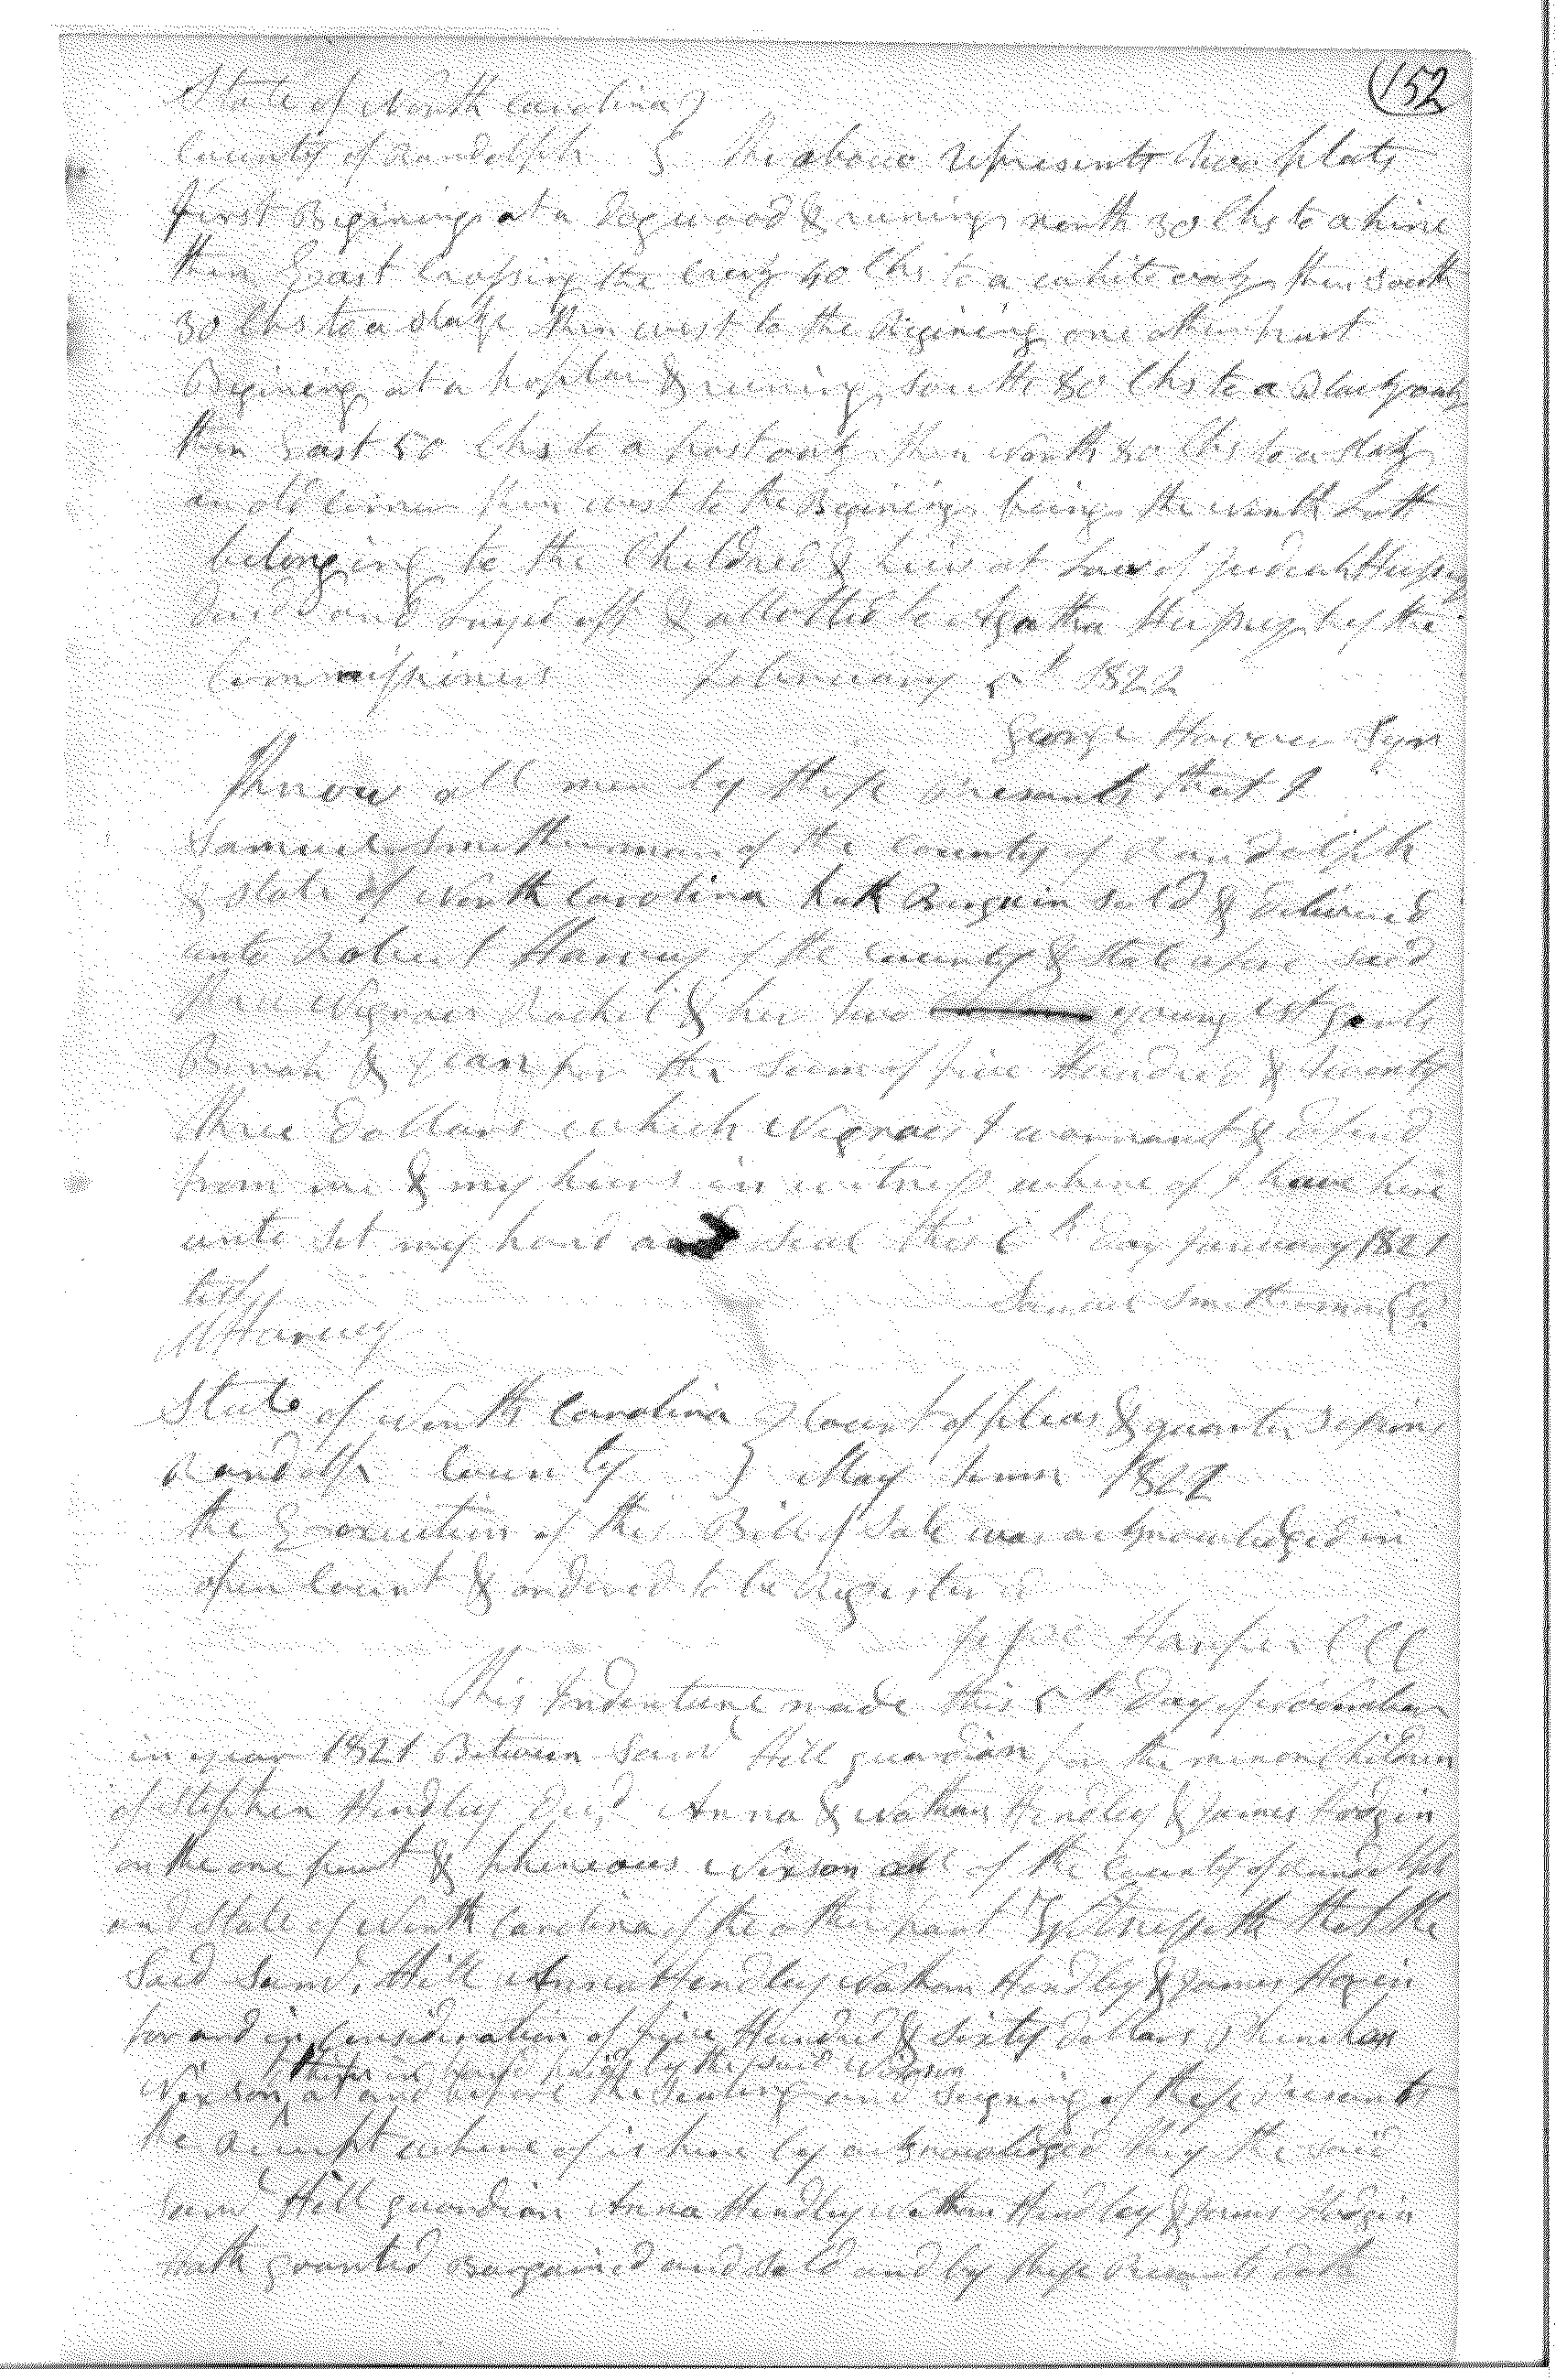 152
State of North Carolina
County of Randolph } The above represents two plats
first Begining at a dogwood & runing north 30 Chs to a pine
then East Crossing the Creek 40 Chs to a white oak then South
30 Chs to a stake then west to the Begining one other tract
Begining at a poplar & runing South 80 Chs to a Black oak
then East 50 Chs to a post oak then North 80 Chs to a stake
an old corner then west to the Begining being the Lott
belonging to the Children & heirs at Law of Hussey
Decd and Layed off & allotted to Agatha Hussey by the
Commissioners february 5th 1822
George Hoover Syr
Know all men by these presents that I
Samuel Smitherman of the County of Randolph
& State of North Carolina hath Bargain sold & delivered
unto Robert Harvey of the County & State afore said
three Negroes Rachel & her two youngest
& for the sum of five Hundred & Seventy
three Dollars which Negroes I warrant & defend
from me & my heirs in witness where of I have here
unto set my hand and seal this 6th day January 1821
test Samuel Smitherman
M Harvey
State of North Carolina } Court of pleas & quarter Sessions
Randolph County } May term 1822
the Execution of this Bill of Sale was acknowledged in
open Court & ordered to be Registerd
Jesse Harper CCC
This Indenture made this 5th day of November
in year 1821 Between Saml Hill guardian for the minor Children
of Stephen Hindley Decd Anna & Nathan Hindley & James Hodgin
on the one part & Phineous Nixson all of the County of Randolph
and State of North Carolina of the other part Witnesseth that the
Said Saml. Hill Anna Hindley Nathan Hindley & James Hogin
for and in Consideration of five Hundred & Sixty dollars Phinehas
to them in hand paid by the said Nixson
Nixson at and before the Sealing and Signing of these presents
the Receipt where of is here by acknowledged they the said
Saml Hill guardian Anna Hindley Nathan Hindley & James Hodgin
Hath granted Bargained and Sold and by these presents doth